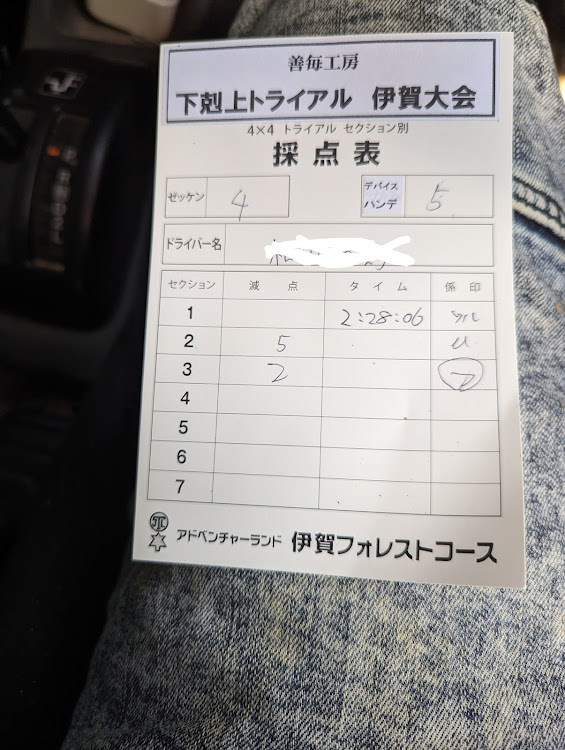 善毎工房
下剋上トライアル 伊賀大会
4×4 トライアル セクション別
採点表
ゼッケン 4 デバイス ハンデ 5
ドライバー名
セクション 減点 タイム 係印
1 2:28:06
2 5
3 2 フ
4
5
6
7
アドベンチャーランド 伊賀フォレストコース